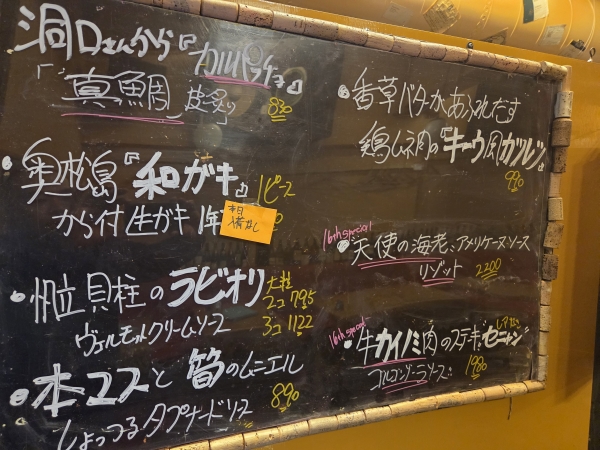 洞口さんから『カルパッチョ』
「真鯛」皮炙り 830
・奥松島『和ガキ』1ピース
から付生ガキ1年
本日
入荷なし
・帆立貝柱のラビオリ 大粒
2コ 795
ヴェルモットクリームソース 3コ 1122
・本マスと筍のムニエル
しょっつるタプナードソース 890
・香草バターがあふれだす
鶏ムネ肉の『キーウ風カツレツ』
990
16th special
・天使の海老、アメリケーヌソース
リゾット 2200
16th special
・牛カイノミ肉のステーキ
ゴルゴンゾーラソース 1980